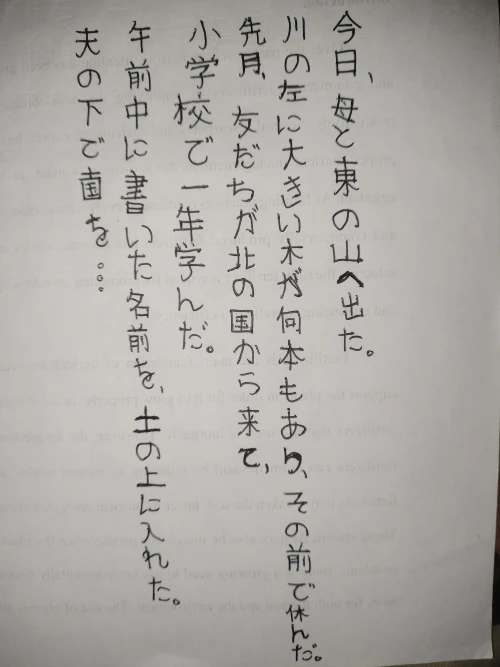 今日、母と東の山へ出た。
川の左に大きい木が何本もあり、その前で休んだ。
先月、友だちが北の国から来て、
小学校で一年学んだ。
午前中に書いた名前を、土の上に入れた。
夫の下でを…